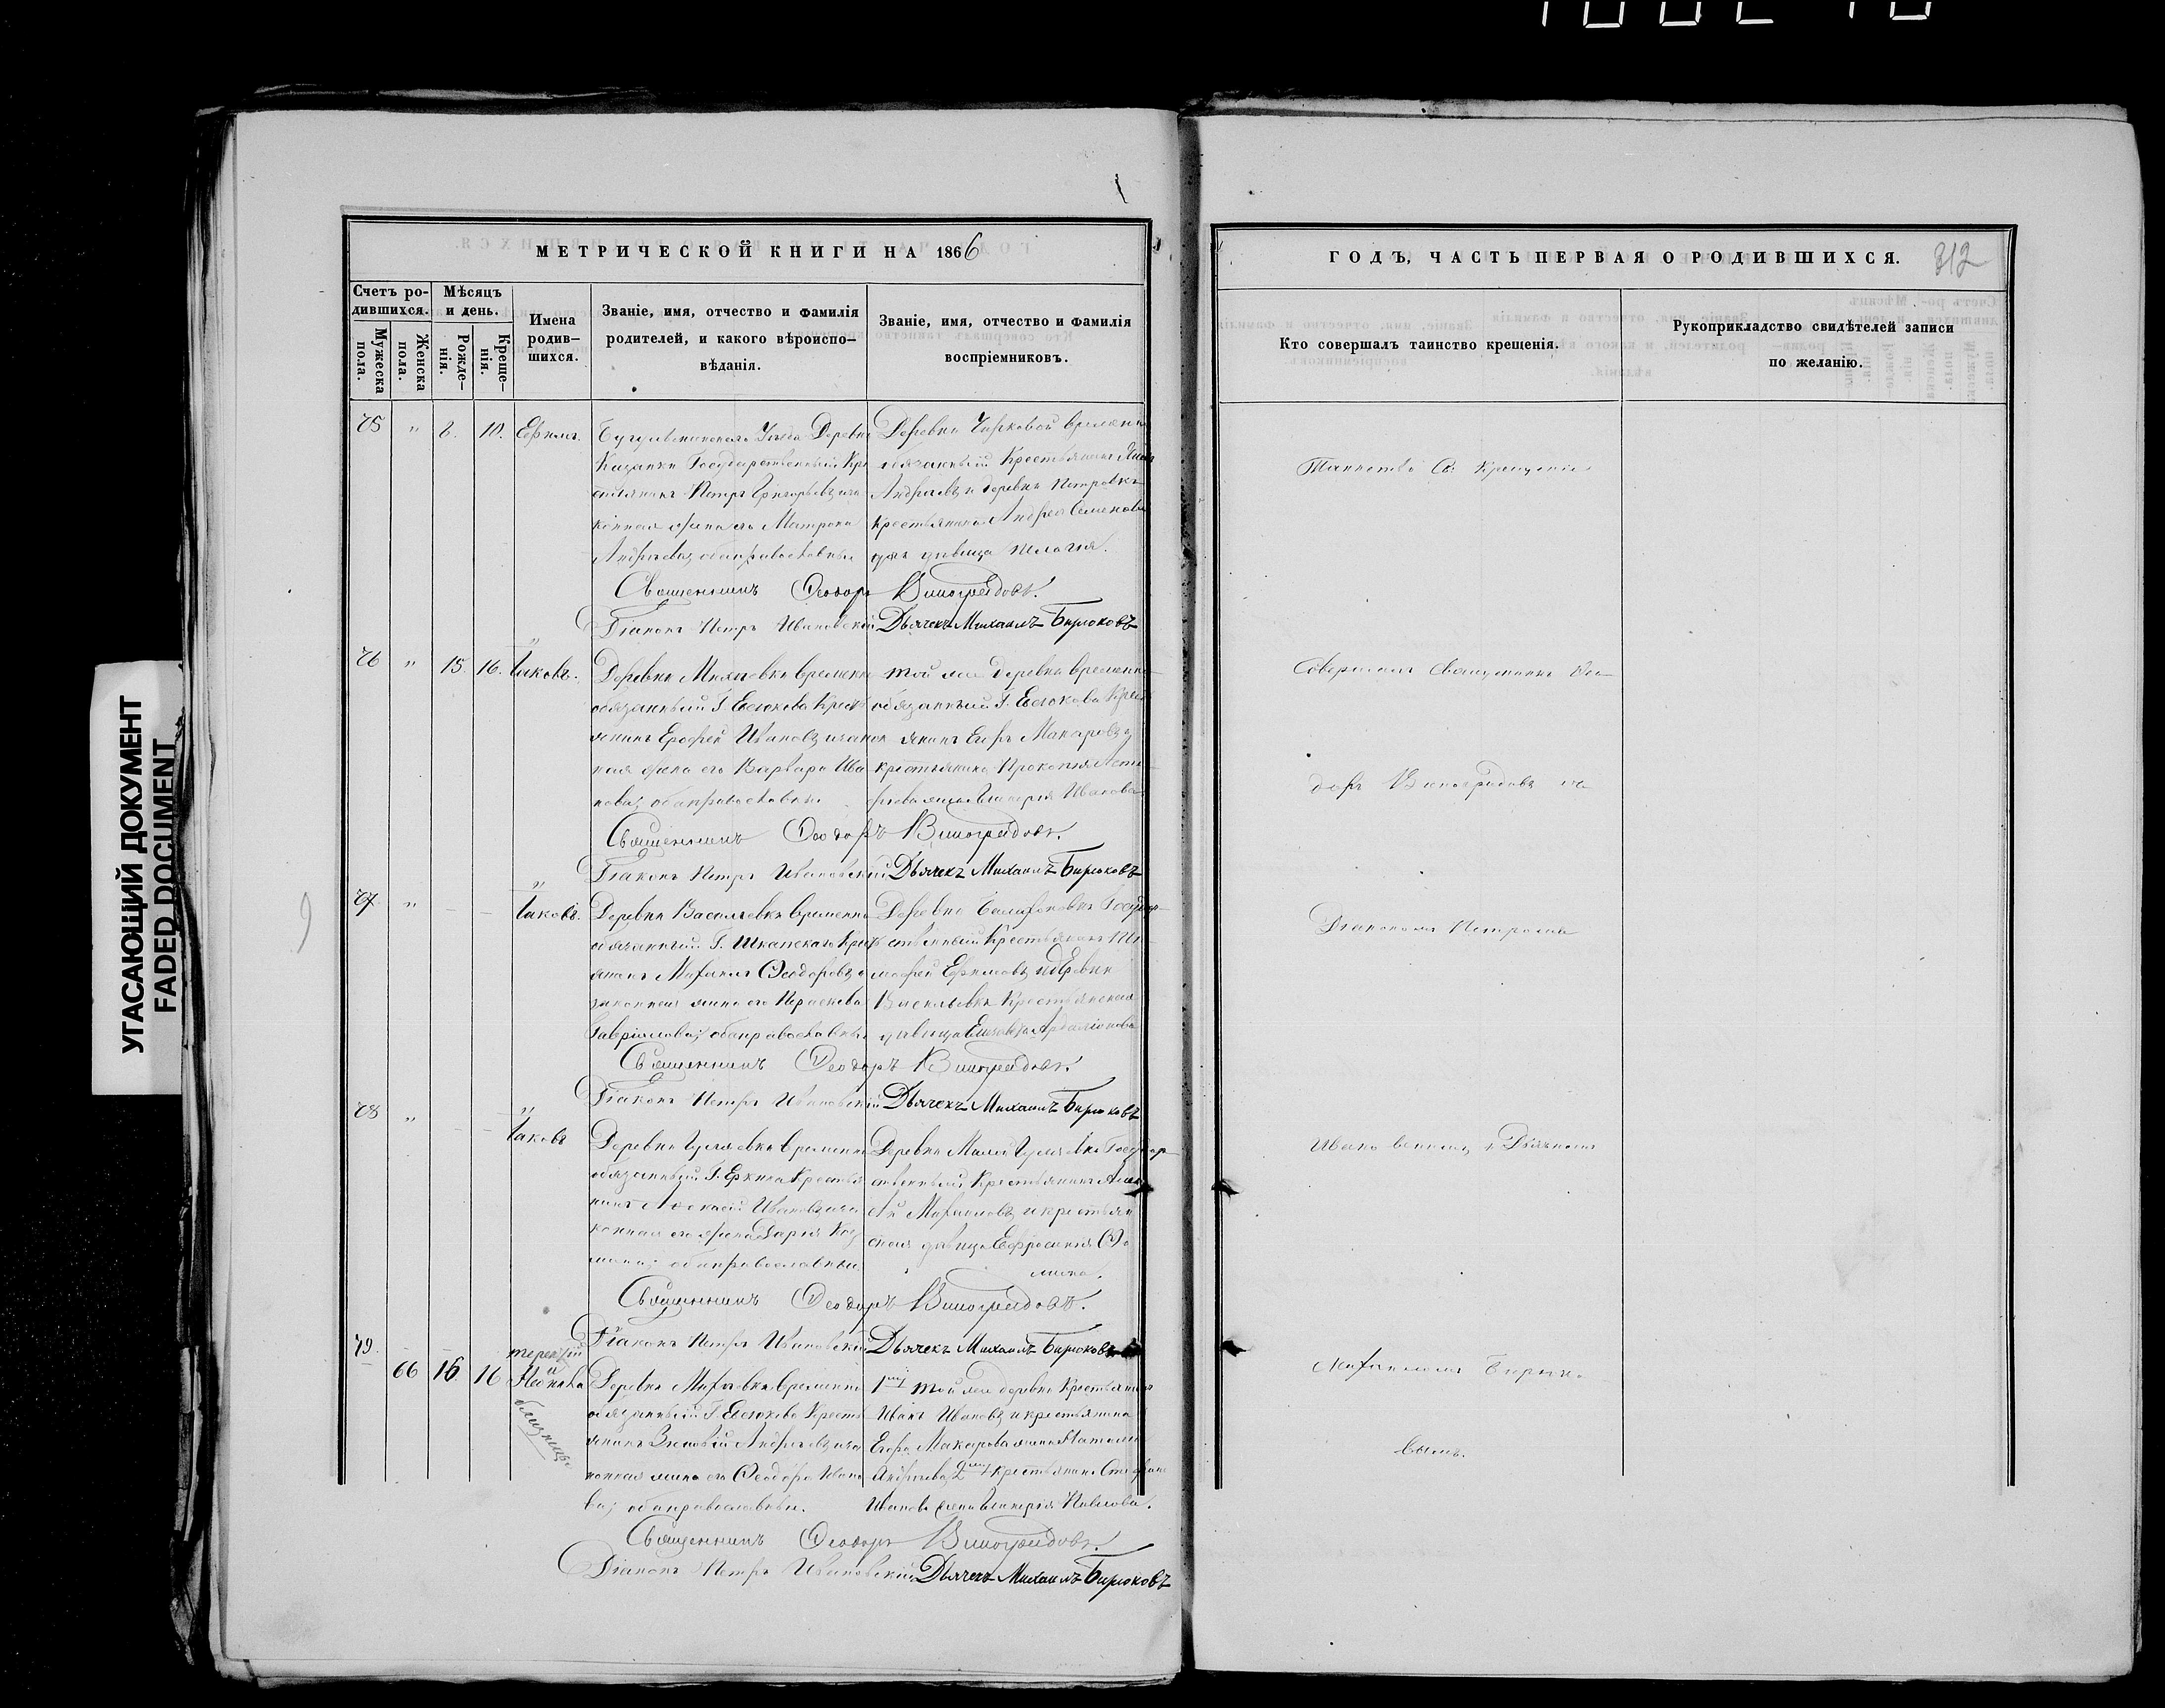 УГАСАЮЩИЙ ДОКУМЕНТ
FADED DOCUMENT
МЕТРИЧЕСКОЙ КНИГИ НА 1866
Счетъ ро-
дившихся.
Мужеска
пола.
Женска
пола.
Мѣсяцъ
и день.
Рожде-
нія.
Креще-
нія.
Имена
родив-
шихся.
Званіе, имя, отчество и фамилія
родителей, и какого вѣроиспо-
вѣданія.
Званіе, имя, отчество и фамилія
воспріемниковъ.
75 " 8. 10. Ефимъ.
Бугульминскаго Уѣзда Деревни
Казанки Государственный Кре
стьянинъ Петръ Григорьевъ и за
конная жена его Матрона
Андреева; оба православные
Деревни Чирковой временно
обязанный Крестьянинъ
Андреевъ и деревни Петровки
крестьянина Андрея Семенова
дочь дѣвица Пелагія.
Священникъ Ѳеодоръ Виноградовъ.
Діаконъ Петръ Ивановскій Дьячекъ Михаилъ Бирюковъ
76 " 15. 16. Іаковъ.
Деревни Михѣевки временно
обязанный Г. Евсюкова Крест
янинъ Ерофей Ивановъ и закон
ная жена его Варвара Ива
нова; оба православные
той же деревни временно
обязанный Г. Евсюкова Крест
янинъ Егоръ Макаровъ и
крестьянина Прокопія
жена Гликерія Иванова.
Священникъ Ѳеодоръ Виноградовъ.
Діаконъ Петръ Ивановскій Дьячекъ Михаилъ Бирюковъ
77 " - - Іаковъ.
Деревни Васильевки временно
обязанный Г. Шкапскаго Крест
янинъ Михаилъ Ѳеодоровъ и
законная жена его Параскева
Гавріилова; оба православные
Деревни Селифоновки Государ
ственный Крестьянинъ Ти
моѳей Ефимовъ и деревни
Васильевки Крестьянская
дѣвица Елисавета Ардаліонова
Священникъ Ѳеодоръ Виноградовъ.
Діаконъ Петръ Ивановскій Дьячекъ Михаилъ Бирюковъ
78 " - - Іаковъ
Деревни Гуляевки временно
обязанный Г. Крестья
нинъ Алексѣй Ивановъ и за
конная его жена Дарія Коз
мина; оба православные
Деревни Малой Гуляевки Государ
ственный Крестьянинъ Алек
сѣй Михаиловъ и крестьян
ская дѣвица Ефросинія Ѳо
мина.
Священникъ Ѳеодоръ Виноградовъ.
Діаконъ Петръ Ивановскій Дьячекъ Михаилъ Бирюковъ
79. 66 16 16 Терентій
и
Неонила
близнецы
Деревни Михѣевки временно
обязанный Г. Евсюкова Кресть
янинъ Зиновій Андреевъ и за
конная жена его Ѳеодора Ивано
ва; оба православные.
1му той же деревни Крестьянинъ
Иванъ Ивановъ и крестьянина
Егора Макарова жена Наталія
Андреева, 2му крестьянина Стефана
Иванова жена Гликерія Павлова.
Священникъ Ѳеодоръ Виноградовъ.
Діаконъ Петръ Ивановскій Дьячекъ Михаилъ Бирюковъ
ГОДЪ, ЧАСТЬ ПЕРВАЯ О РОДИВШИХСЯ. 312
Кто совершалъ таинство крещенія.
Рукоприкладство свидѣтелей записи
по желанію.
Таинство Св. Крещенія
Совершалъ Священникъ Ѳео
доръ Виноградовъ съ
Діакономъ Петромъ
Ивановскимъ и Дьячкомъ
Михаиломъ Бирюко
вымъ.